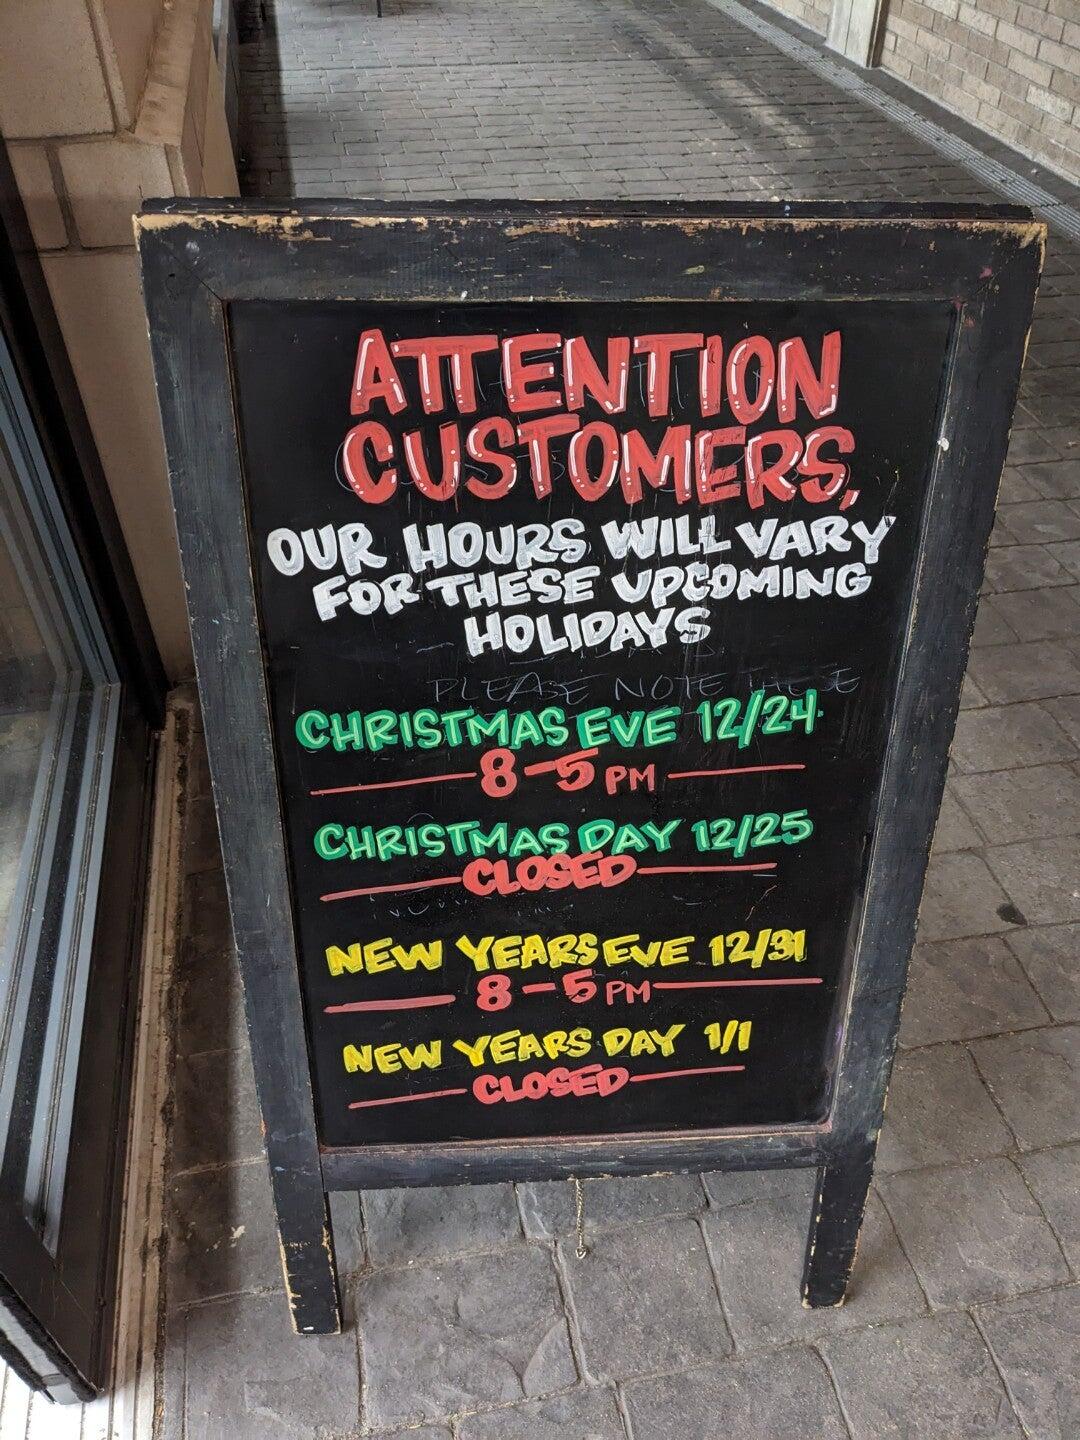 ATTENTION
CUSTOMERS,
OUR HOURS WILL VARY
FOR THESE UPCOMING
HOLIDAYS
PLEASE NOTE THESE
CHRISTMAS EVE 12/24
8-5 PM
CHRISTMAS DAY 12/25
CLOSED
NEW YEARS EVE 12/31
8-5 PM
NEW YEARS DAY 1/1
CLOSED